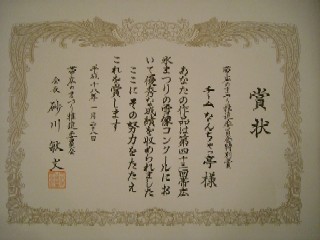 賞状
帯広のまつり推進委員会特別賞
チームなんちゃって亭 様
あなたの作品は第四十三回帯広
氷まつりの雪像コンクールにお
いて優秀な成績を収められました
ここにその努力をたたえ
これを賞します
平成十八年一月二十八日
帯広のまつり推進委員会
会長 砂川敏文